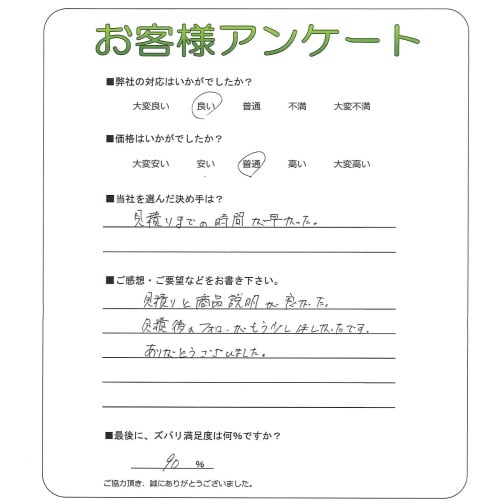 お客様アンケート
■弊社の対応はいかがでしたか？
大変良い 良い 普通 不満 大変不満
■価格はいかがでしたか？
大変安い 安い 普通 高い 大変高い
■当社を選んだ決め手は？
見積りまでの時間が早かった。
■ご感想・ご要望などをお書き下さい。
見積りと商品説明が良かった。
見積後のフォローがもう少しほしかったです。
ありがとうございました。
■最後に、ズバリ満足度は何％ですか？
90 ％
ご協力頂き、誠にありがとうございました。